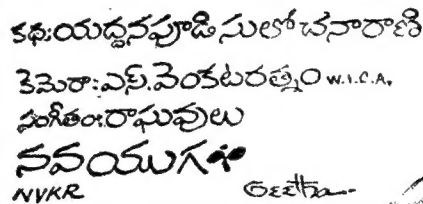 కథ:యద్దనపూడి సులోచనారాణి
కెమెరా:ఎస్.వెంకటరత్నం W.I.C.A.
సంగీతం:రాఘవులు
నవయుగ
NVKR Geetha